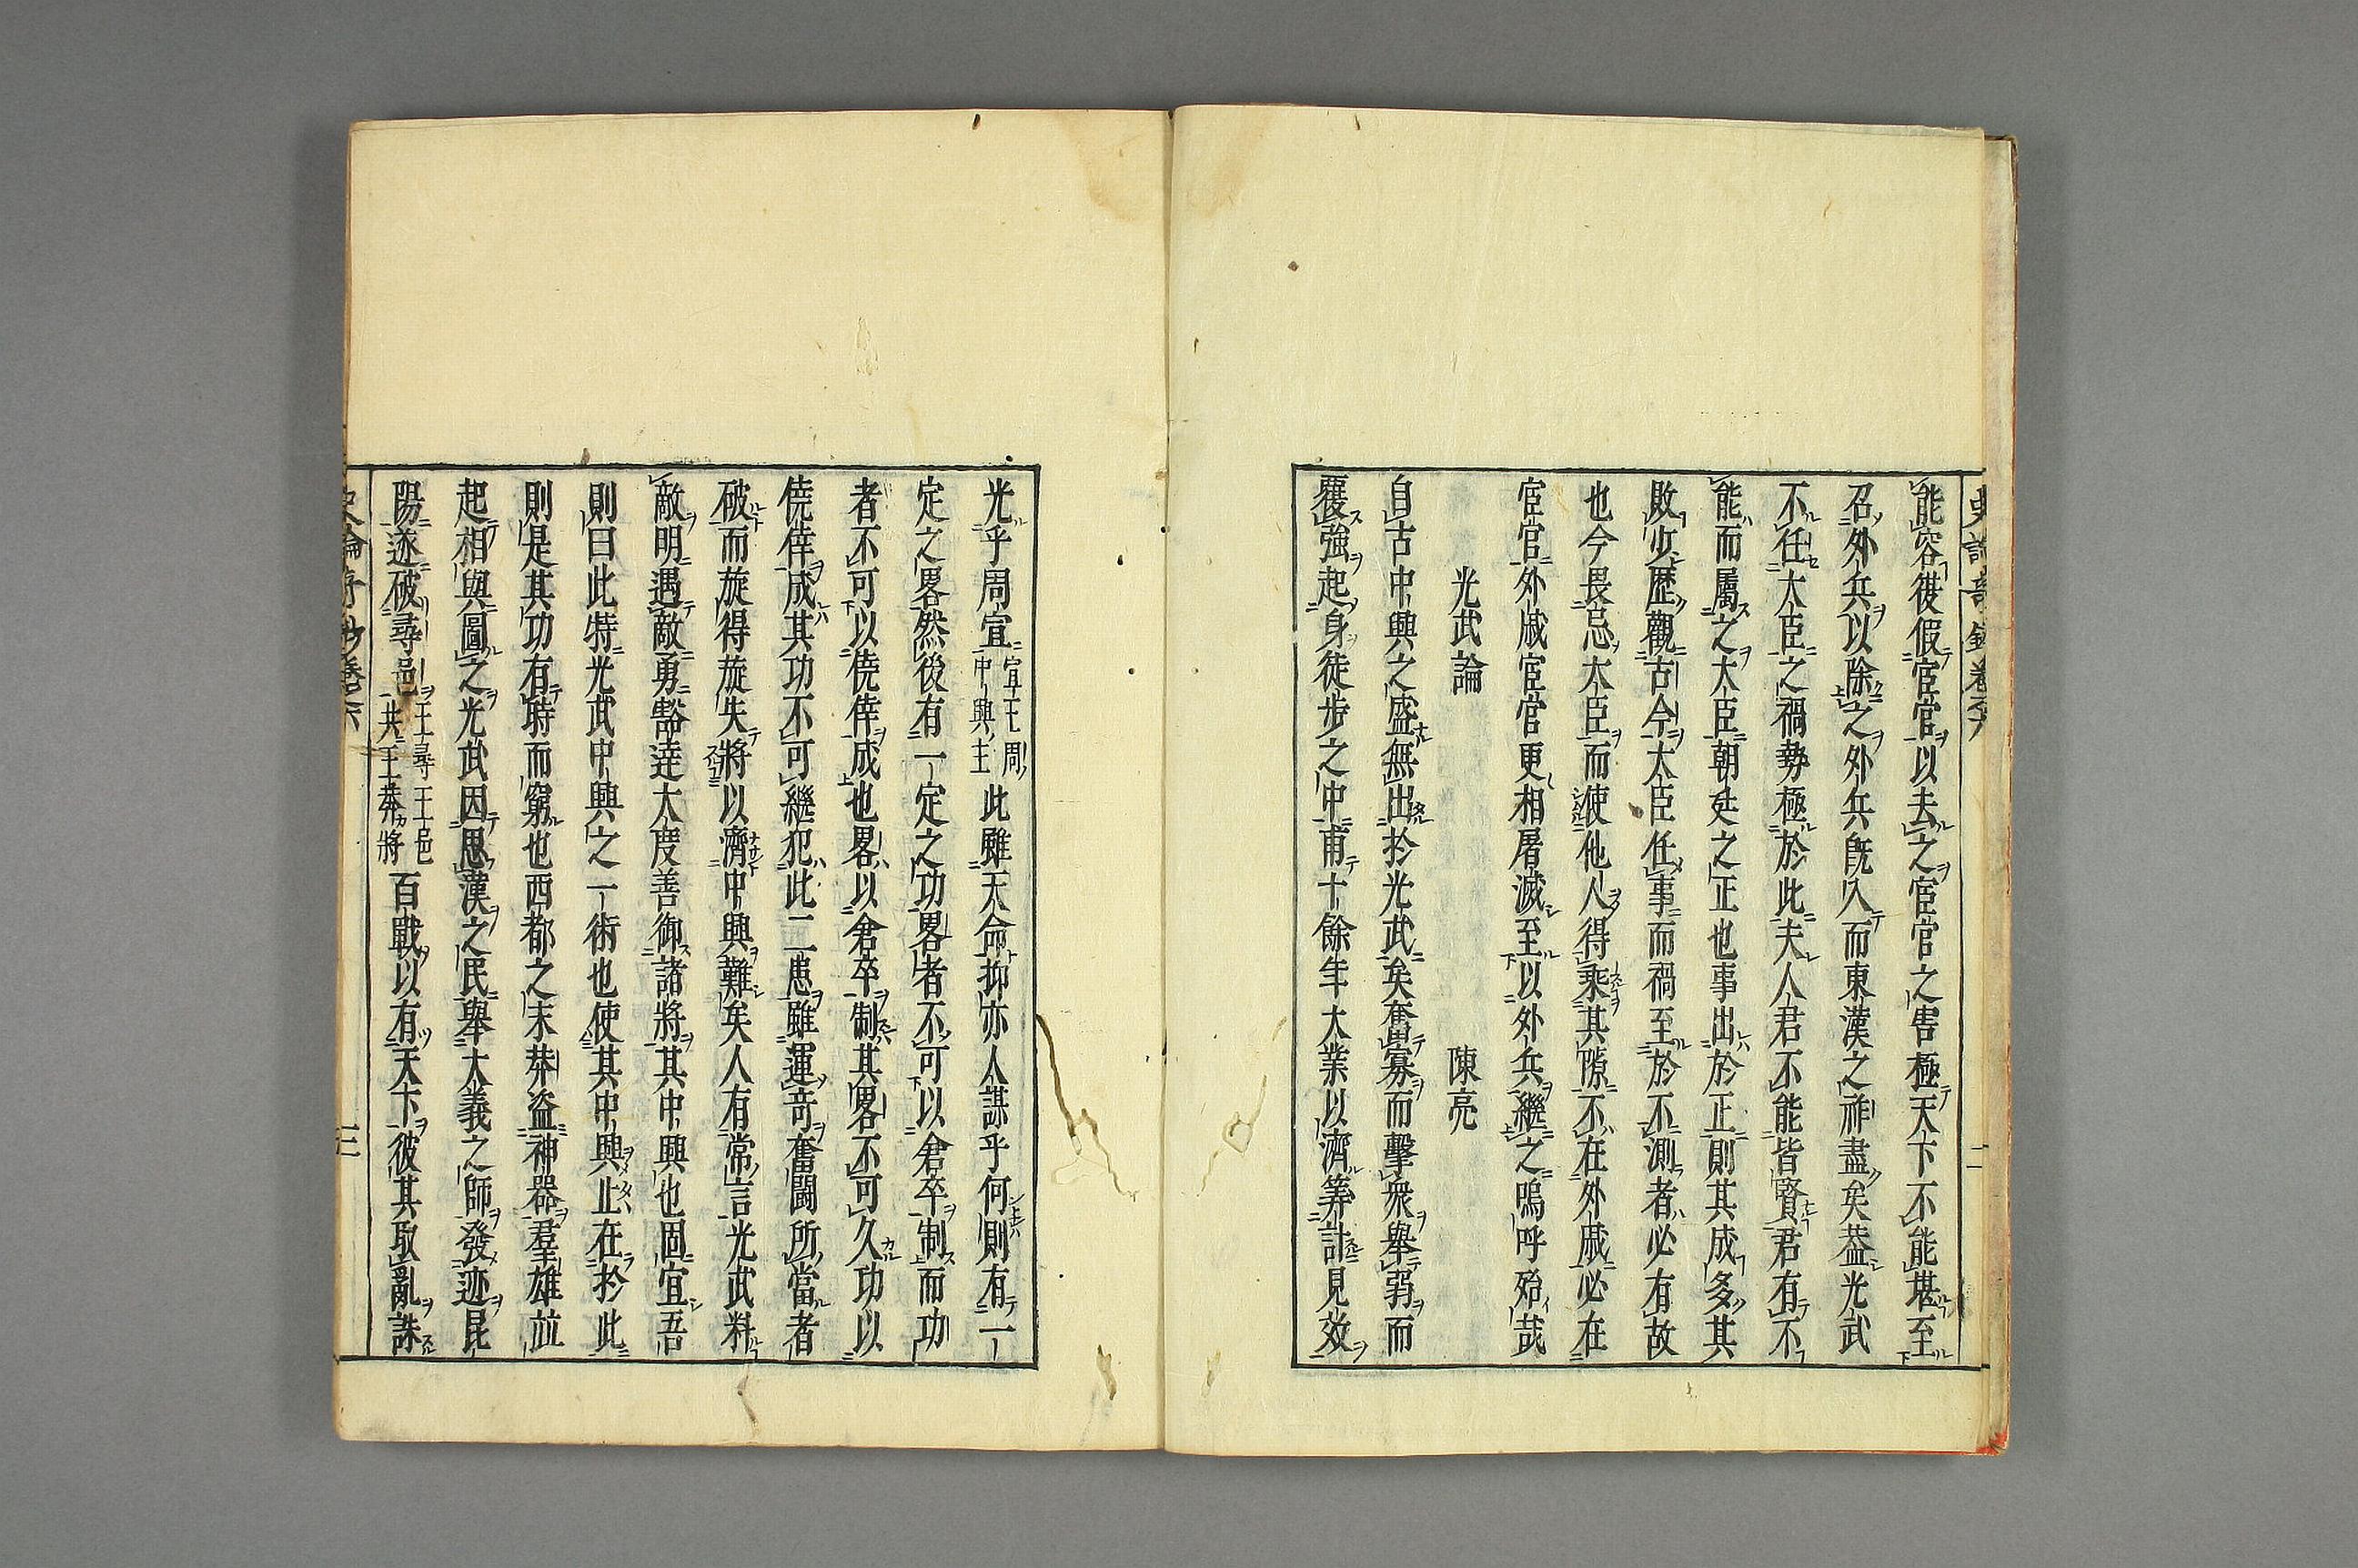 能容復假宦官以去之宦官之害極天下不能堪至
召外兵以除之外兵既入而東漢之祚盡矣蓋光武
不任大臣之禍勢極於此夫人君不能皆賢君有不
能而屬之大臣朝廷之正也事出於正則其成多其
敗少歷觀古今大臣任事而禍至於不測者必有故
也今畏忌大臣而使他人得乘其隙不在外戚必在
宦官外戚宦官更相屠滅至以外兵繼之嗚呼殆哉
光武論 陳亮
自古中興之盛無出於光武矣奮寡而擊衆舉弱而
覆強起身徒步之中甫十餘年大業以濟筭計見效
光乎周宣宣王周中興主此雖天命抑亦人謀乎何則有一
定之畧然後有一定之功畧者不可以倉卒制而功
者不可以僥倖成也畧以倉卒制其畧不可久功以
僥倖成其功不可繼犯此二患雖運奇奮鬪所當者
破而旋得旋失將以濟中興難矣人有常言光武料
敵明遇敵勇豁達大度善御諸將其中興也固宜吾
則曰此特光武中興之一術也使其中興止在於此
則是其功有時而窮也西都之末莽盜神器羣雄並
起相與圖之光武因思漢之民舉大義之師發迹昆
陽遂破尋邑王尋王邑共王莽將百戰以有天下彼其取亂誅
史論奇鈔卷六 三